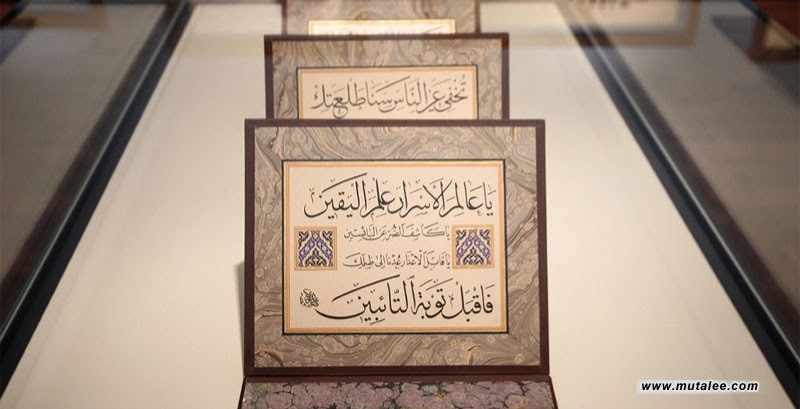 تُخْفِي عَنِ النَّاسِ سَنَا طَلْعَتِكَ
يَا عَالِمَ الْأَسْرَارِ عِلْمَ الْيَقِينِ
يَا كَاشِفَ الضُّرِّ عَنِ الْبَائِسِينَ
يَا قَابِلَ الْأَعْذَارِ عُدْنَا إِلَى ظِلِّكَ
فَاقْبَلْ تَوْبَةَ التَّائِبِينَ
www.mutalee.com